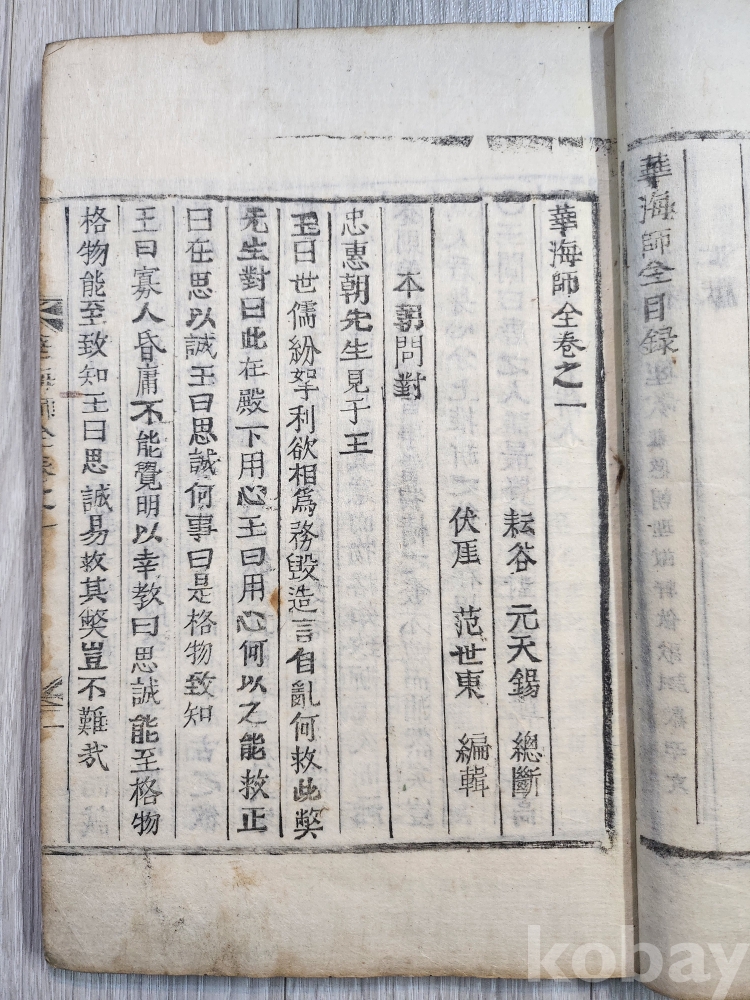 華海師全目録
華海師全卷之一
耘谷 元天錫 總斷
伏厓 范世東 編輯
本朝問對
忠惠朝先生見于王
王曰世儒紛挐利欲相爲務毁造言自亂何救此獘
先生對曰此在殿下用心王曰用心何以之能救正
曰在思以誠王曰思誠何事曰是格物致知
王曰寡人昏庸不能覺明以幸教曰思誠能至格物
格物能至致知王曰思誠易救其獘豈不難哉
kobay